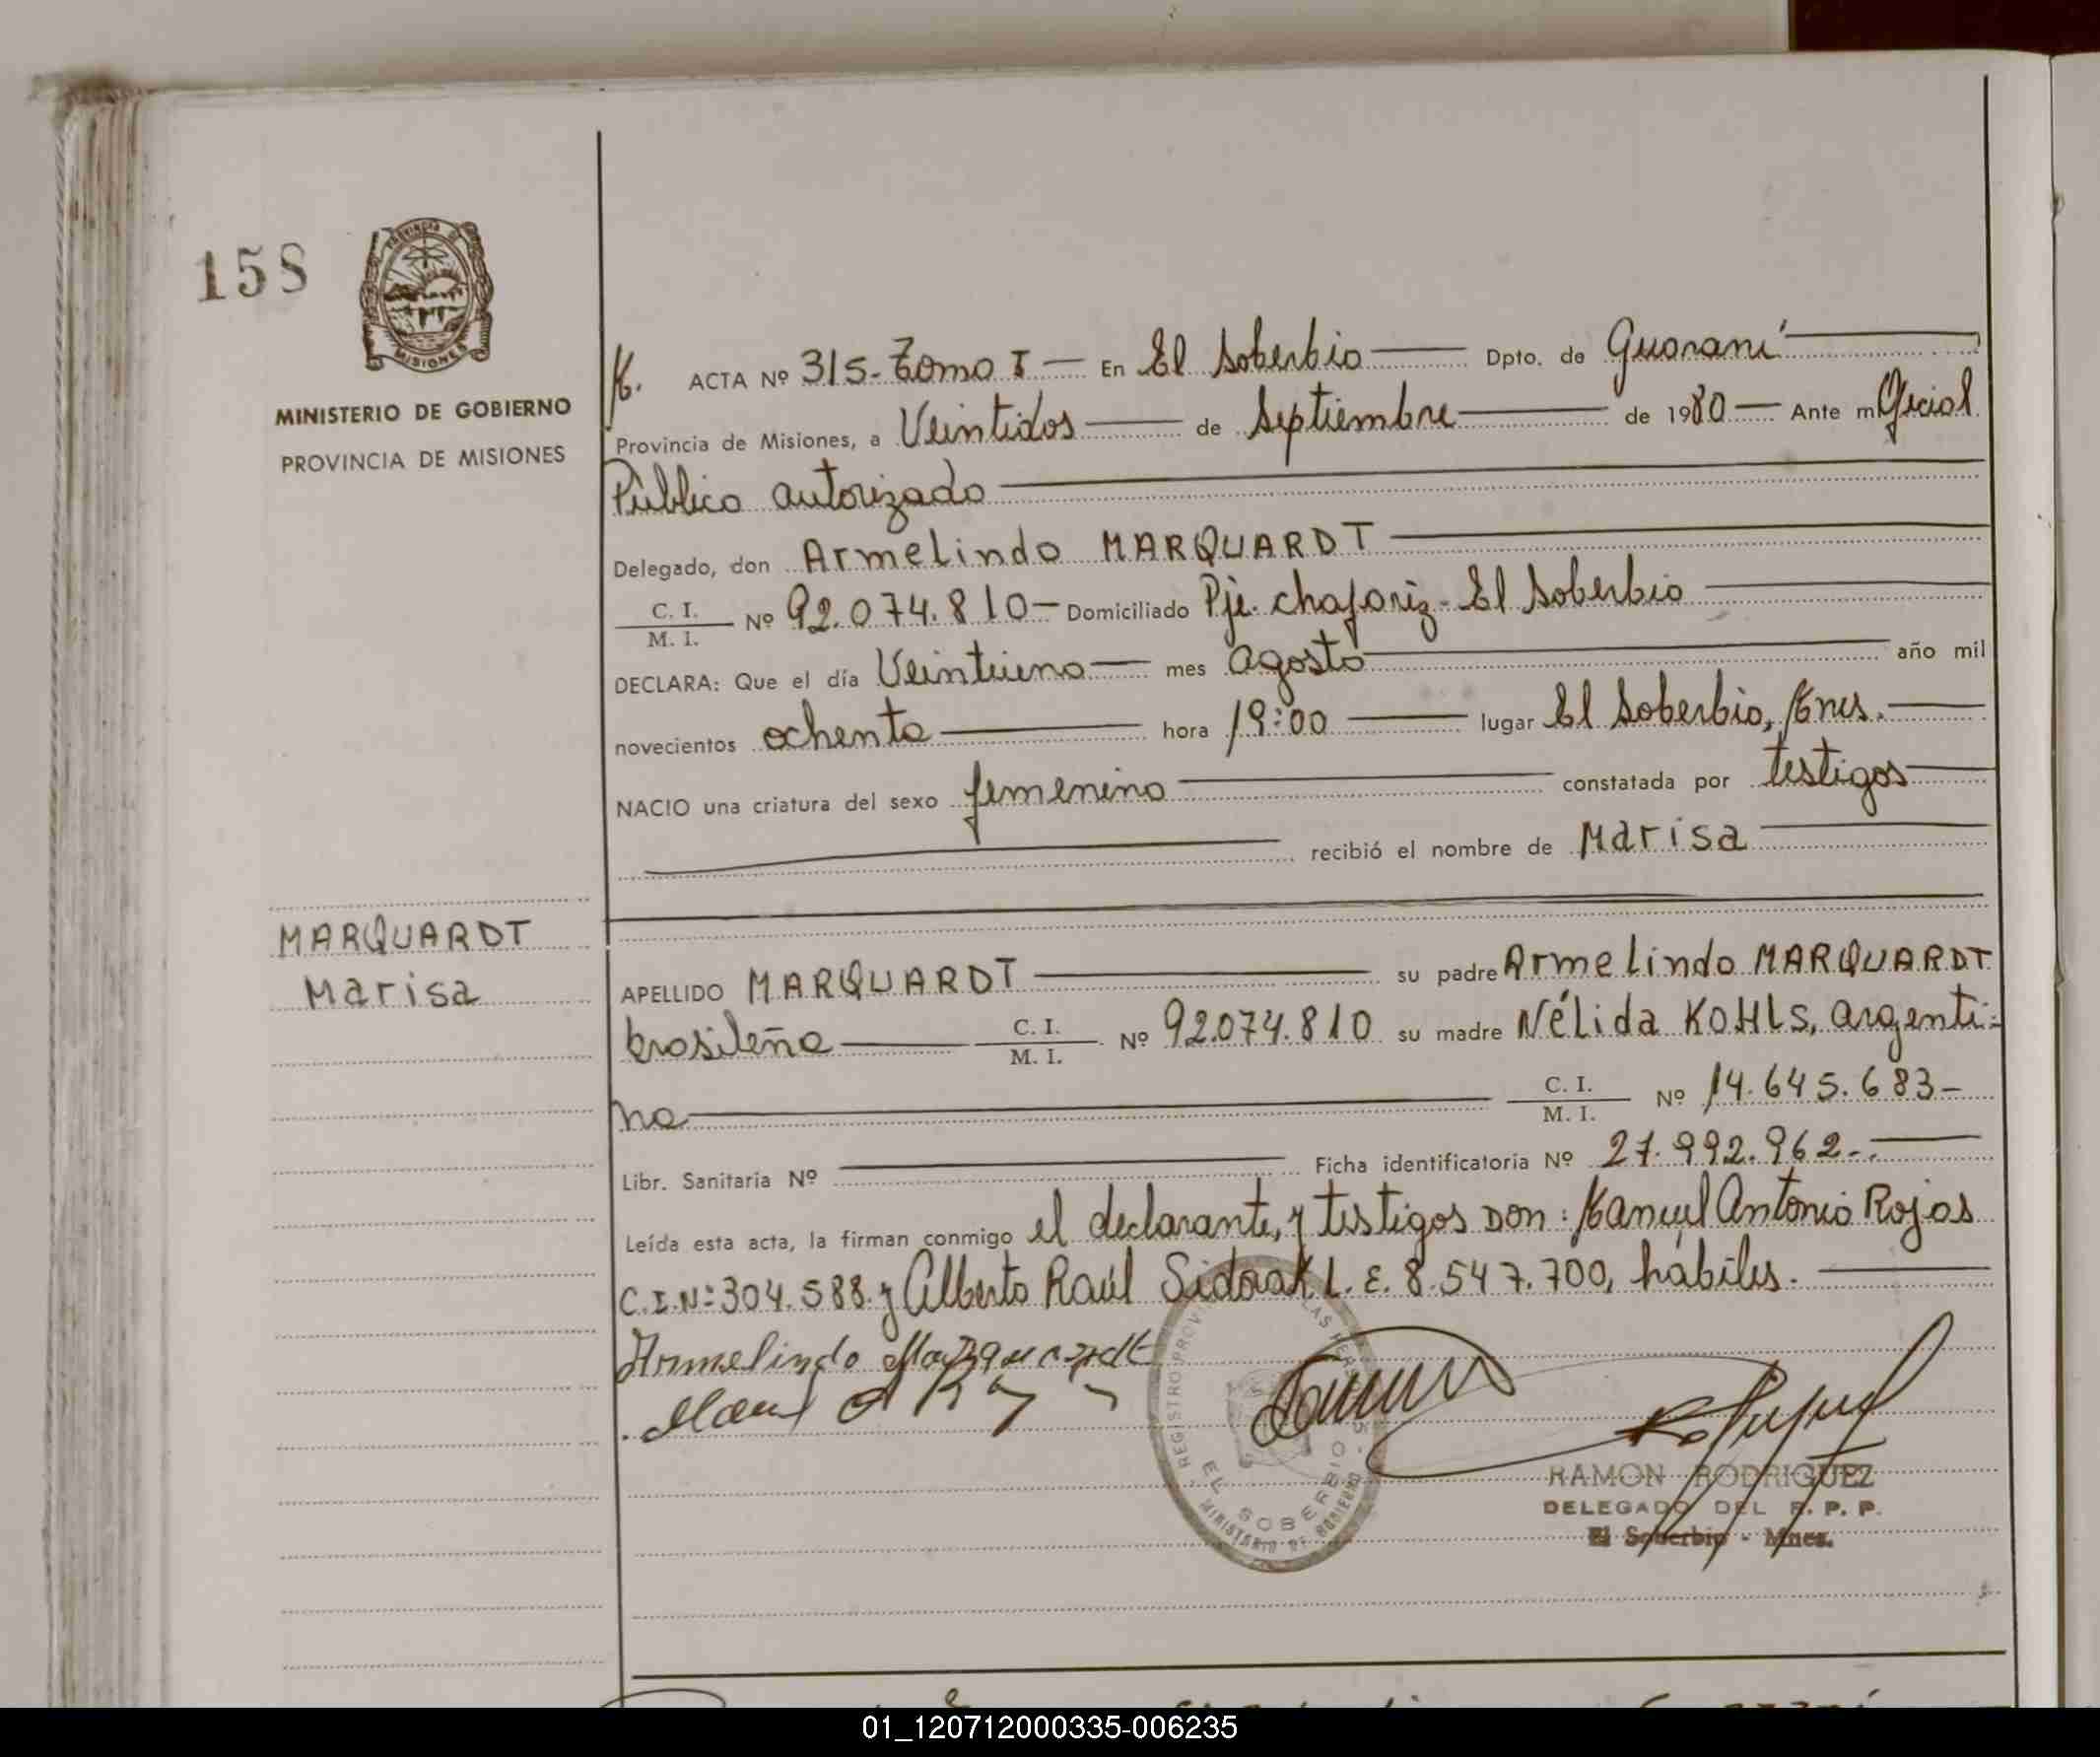 158
PROVINCIA DE
MISIONES
MINISTERIO DE GOBIERNO
PROVINCIA DE MISIONES
ACTA Nº 315-Tomo I — En El Soberbio — Dpto. de Guaraní
Provincia de Misiones, a Veintidos — de Septiembre — de 1980 — Ante mi Oficial
Público autorizado
Delegado, don Armelindo MARQUARDT
C. I.
M. I. Nº 92.074.810 — Domiciliado Pje. chafariz - El Soberbio
DECLARA: Que el día Veintiuno — mes agosto — año mil
novecientos ochenta — hora 19:00 — lugar El Soberbio, Mnes.
NACIO una criatura del sexo femenino — constatada por testigos
recibió el nombre de Marisa
MARQUARDT
Marisa
APELLIDO MARQUARDT — su padre Armelindo MARQUARDT
brasileña — C. I. M. I. Nº 92.074.810 su madre Nélida KOHLS, argenti=
na — C. I. M. I. Nº 14.645.683-
Libr. Sanitaria Nº — Ficha identificatoria Nº 27.992.962-.
Leída esta acta, la firman conmigo el declarante, y testigos Don: Manuel Antonio Rojas
C.I.Nº 304.588 y Alberto Raúl Sidorak L.E. 8.547.700, hábiles.
Armelindo Marquardt
REGISTRO PROV
LAS PERS
EL SOBERBIO
MINISTERIO DE GOBIERNO
RAMON RODRIGUEZ
DELEGADO DEL R. P. P.
El Soberbio - Mnes.
01_120712000335-006235